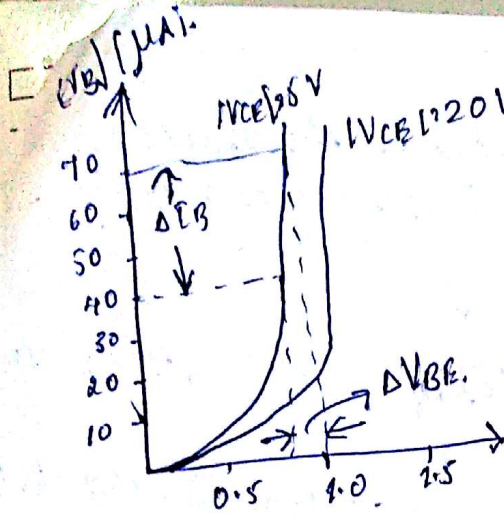 [μA].
|VCE|=5V
|VCE|=20V
70
60
ΔIB
50
40
30
20
10
ΔVBE.
0.5
1.0
1.5